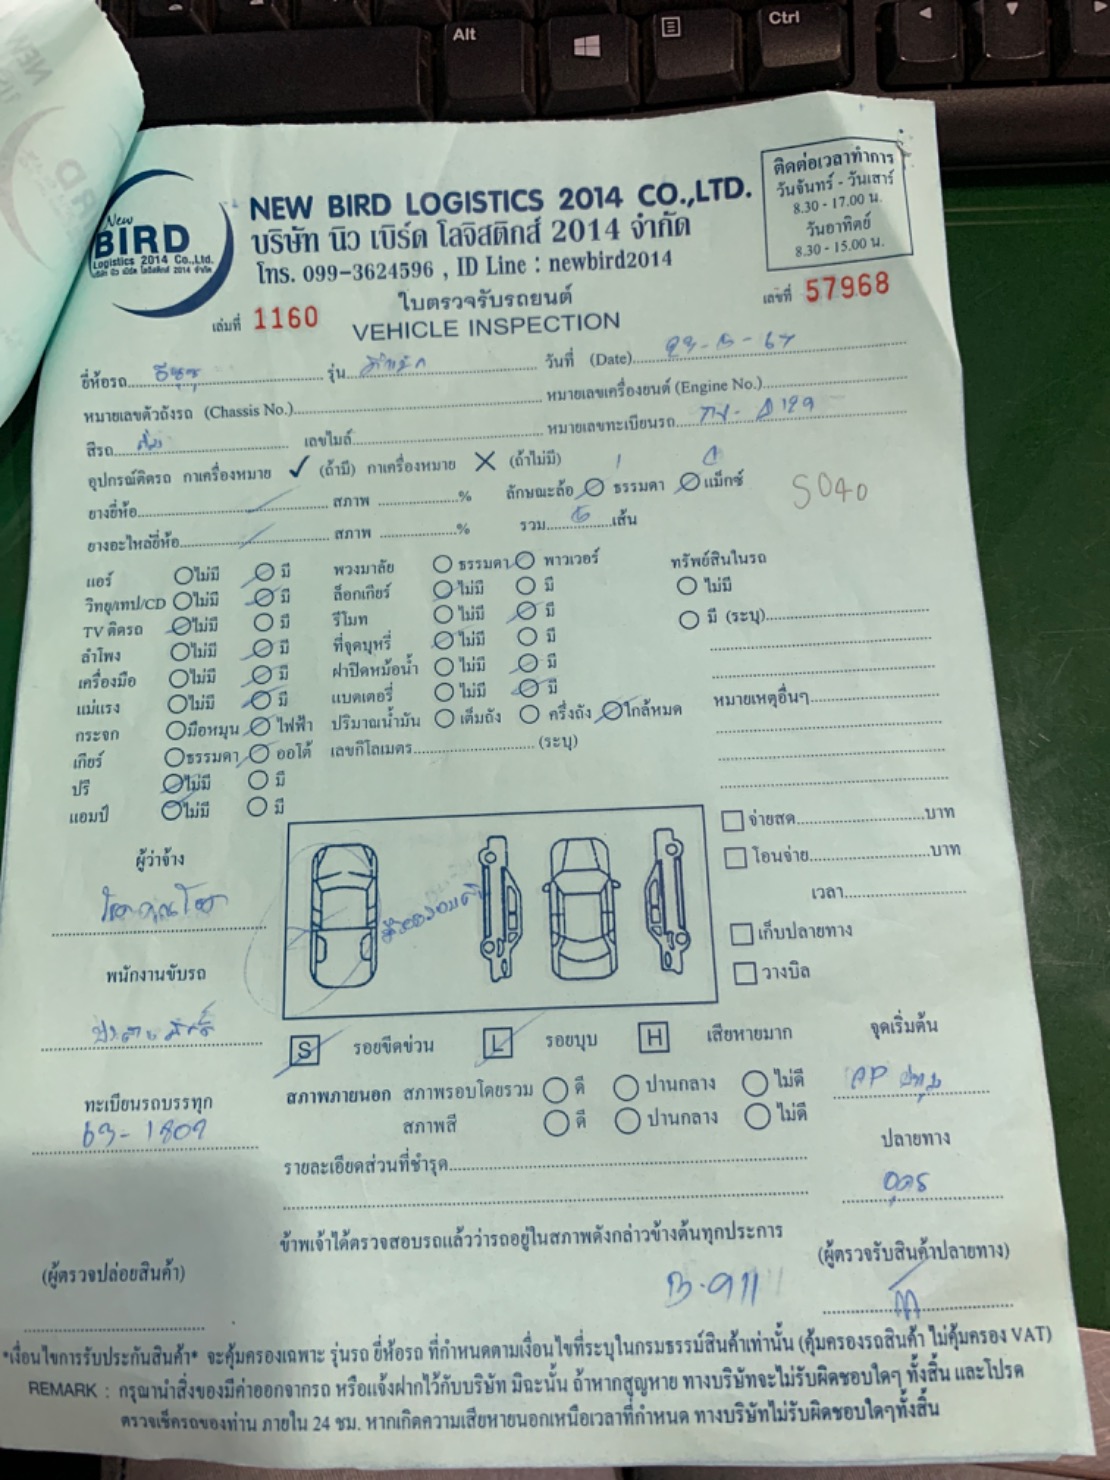 Alt
Ctrl
New
BIRD
Logistics 2014 Co.,Ltd.
บริษัท นิว เบิร์ด โลจิสติกส์ 2014 จำกัด
NEW BIRD LOGISTICS 2014 CO.,LTD.
บริษัท นิว เบิร์ด โลจิสติกส์ 2014 จำกัด
โทร. 099-3624596 , ID Line : newbird2014
ติดต่อเวลาทำการ
วันจันทร์ - วันเสาร์
8.30 - 17.00 น.
วันอาทิตย์
8.30 - 15.00 น.
ใบตรวจรับรถยนต์
เล่มที่ 1160 VEHICLE INSPECTION เลขที่ 57968
ยี่ห้อรถ อีซูซุ รุ่น วันที่ (Date)
หมายเลขตัวถังรถ (Chassis No.) หมายเลขเครื่องยนต์ (Engine No.)
สีรถ เลขไมล์ หมายเลขทะเบียนรถ
อุปกรณ์ติดรถ กาเครื่องหมาย ✓ (ถ้ามี) กาเครื่องหมาย ✕ (ถ้าไม่มี)
ยางยี่ห้อ สภาพ % ลักษณะล้อ ธรรมดา แม็กซ์ 5040
ยางอะไหล่ยี่ห้อ สภาพ % รวม 5 เส้น
แอร์ ไม่มี มี พวงมาลัย ธรรมดา พาวเวอร์ ทรัพย์สินในรถ
วิทยุ/เทป/CD ไม่มี มี ล็อกเกียร์ ไม่มี มี ไม่มี
TV ติดรถ ไม่มี มี รีโมท ไม่มี มี มี (ระบุ)
ลำโพง ไม่มี มี ที่จุดบุหรี่ ไม่มี มี
เครื่องมือ ไม่มี มี ฝาปิดหม้อน้ำ ไม่มี มี
แม่แรง ไม่มี มี แบตเตอรี่ ไม่มี มี หมายเหตุอื่นๆ
กระจก มือหมุน ไฟฟ้า ปริมาณน้ำมัน เต็มถัง ครึ่งถัง ใกล้หมด
เกียร์ ธรรมดา ออโต้ เลขกิโลเมตร (ระบุ)
ปรี ไม่มี มี
แอมป์ ไม่มี มี
ผู้ว่าจ้าง
พนักงานขับรถ
ทะเบียนรถบรรทุก
63-1809
(ผู้ตรวจปล่อยสินค้า)
จ่ายสด บาท
โอนจ่าย บาท
เวลา
เก็บปลายทาง
วางบิล
S รอยขีดข่วน L รอยบุบ H เสียหายมาก
จุดเริ่มต้น
สภาพภายนอก สภาพรอบโดยรวม ดี ปานกลาง ไม่ดี
สภาพสี ดี ปานกลาง ไม่ดี
ปลายทาง
อุดร
รายละเอียดส่วนที่ชำรุด
ข้าพเจ้าได้ตรวจสอบรถแล้วว่ารถอยู่ในสภาพดังกล่าวข้างต้นทุกประการ
(ผู้ตรวจรับสินค้าปลายทาง)
*เงื่อนไขการรับประกันสินค้า* จะคุ้มครองเฉพาะ รุ่นรถ ยี่ห้อรถ ที่กำหนดตามเงื่อนไขที่ระบุในกรมธรรม์สินค้าเท่านั้น (คุ้มครองรถสินค้า ไม่คุ้มครอง VAT)
REMARK : กรุณานำสิ่งของมีค่าออกจากรถ หรือแจ้งฝากไว้กับบริษัท มิฉะนั้น ถ้าหากสูญหาย ทางบริษัทจะไม่รับผิดชอบใดๆ ทั้งสิ้น และโปรด
ตรวจเช็ครถของท่าน ภายใน 24 ชม. หากเกิดความเสียหายนอกเหนือเวลาที่กำหนด ทางบริษัทไม่รับผิดชอบใดๆทั้งสิ้น